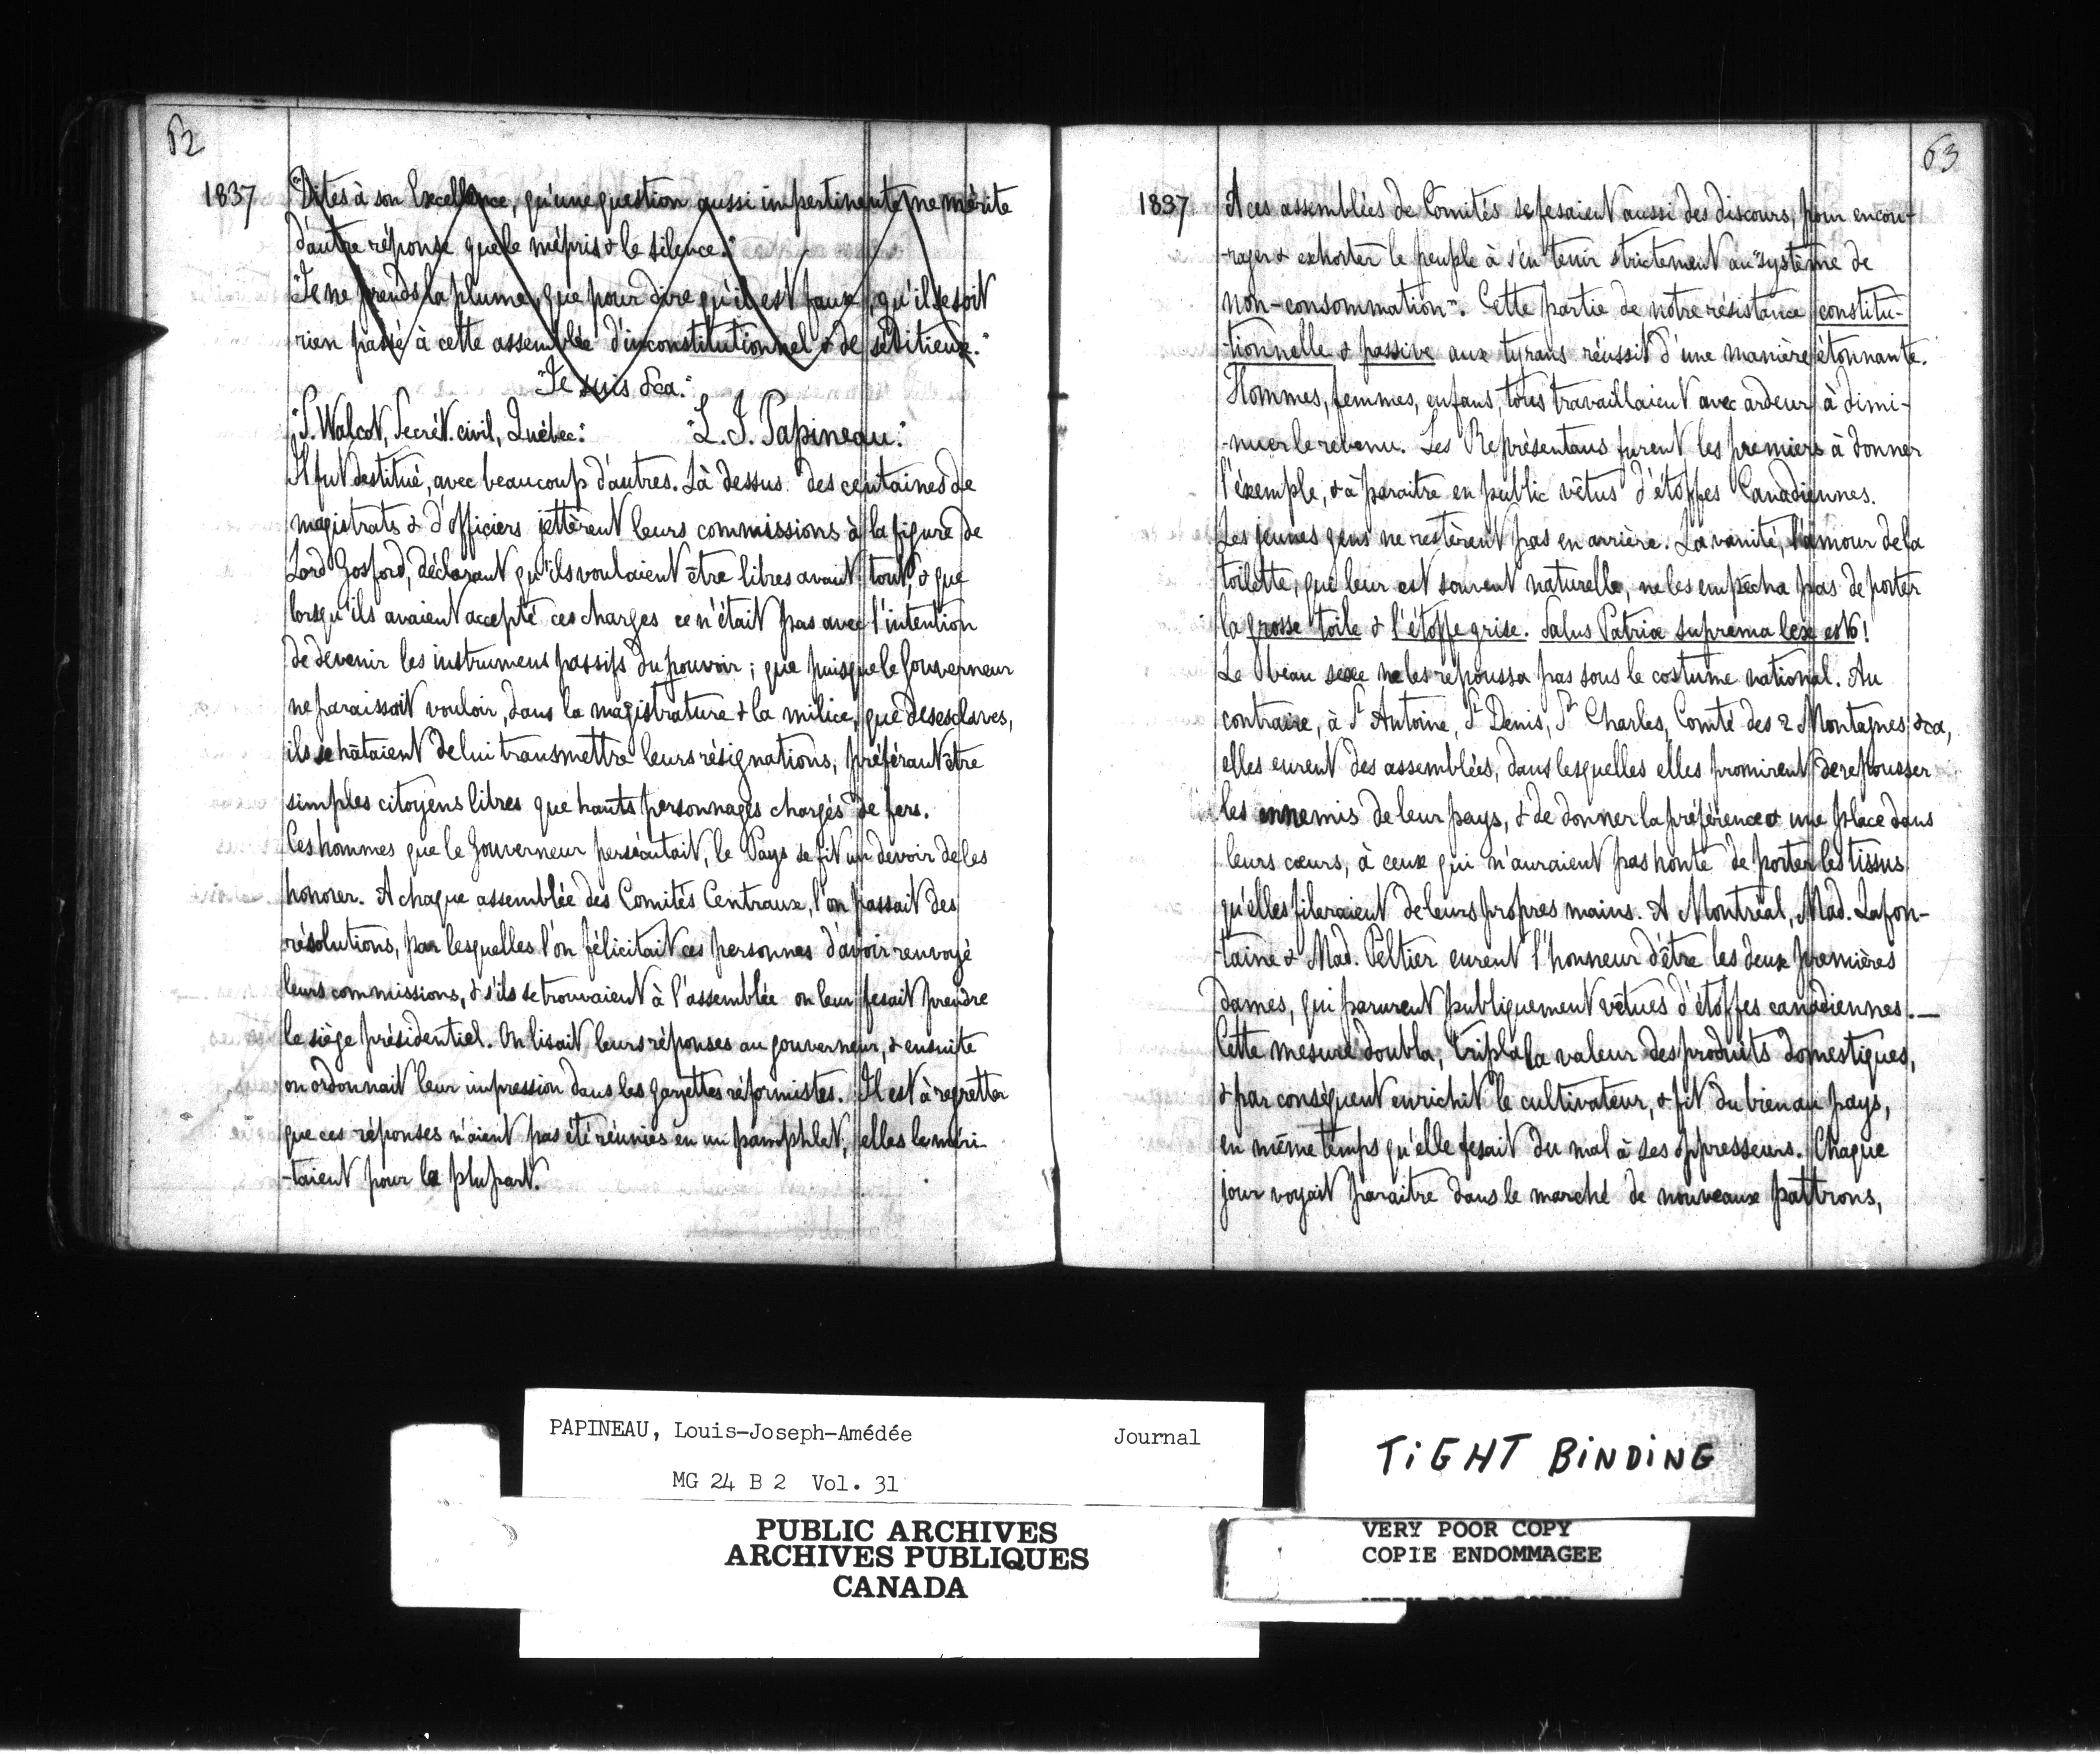 62
1837
"Dites à son Excellence, qu'une question aussi impertinente, ne mérite
d'autre réponse que le mépris & le silence."
"Je ne prends la plume, que pour dire qu'il est faux, qu'il se soit
rien passé à cette assemblée d'inconstitutionnel & de séditieux."
"Je suis &ca."
"S. Walcot, Secrét. civil, Québec." "L. J. Papineau."
Il fut destitué, avec beaucoup d'autres. Là dessus des centaines de
magistrats & d'officiers jettèrent leurs commissions à la figure de
Lord Gosford, déclarant qu'ils voulaient être libres avant tout, & que
lorsqu'ils avaient accepté ces charges ce n'était pas avec l'intention
de devenir les instrumens passifs du pouvoir; que puisque le Gouverneur
ne paraissait vouloir, dans la magistrature & la milice, que des esclaves,
ils se hâtaient de lui transmettre leurs résignations, préférant être
simples citoyens libres que hauts personnages chargés de fers.
Ces hommes que le Gouverneur persécutait, le Pays se fit un devoir de les
honorer. A chaque assemblée des Comités Centraux, l'on passait des
résolutions, par lesquelles l'on félicitait ces personnes d'avoir renvoyé
leurs commissions, & s'ils se trouvaient à l'assemblée on leur fesait prendre
le siège présidentiel. On lisait leurs réponses au gouverneur, & ensuite
on ordonnait leur impression dans les gazettes réformistes. Il est à regretter
que ces réponses n'aient pas été réunies en un pamphlet; elles le méri-
-taient pour la plupart.
63
1837
A ces assemblées de Comités se fesaient aussi des discours, pour encou-
-rager & exhorter le peuple à s'en tenir strictement au "système de
non-consommation". Cette partie de notre résistance constitu-
-tionnelle & passive aux tyrans réussit d'une manière étonnante.
Hommes, femmes, enfans, tous travaillaient avec ardeur à dimi-
-nuer le revenu. Les Représentans furent les premiers à donner
l'éxemple, & à paraitre en public vêtus d'étoffes Canadiennes.
Les jeunes gens ne restèrent pas en arrière. La vanité, l'amour de la
toilette, que leur est souvent naturelle, ne les empêcha pas de porter
la grosse toile & l'étoffe grise. Salus Patriæ suprema lex esto!
Le beau sexe ne les repoussa pas sous le costume national. Au
contraire, à St Antoine, St Denis, St Charles, Comté des 2 Montagnes &ca,
elles eurent des assemblées, dans lesquelles elles promirent de repousser
les ennemis de leur pays, & de donner la préférence & une place dans
leurs cœurs, à ceux qui n'auraient pas honte de porter les tissus
qu'elles fileraient de leurs propres mains. A Montréal, Mad. Lafon-
-taine & Mad. Peltier eurent l'honneur d'être les deux premières
dames, qui parurent publiquement vêtues d'étoffes canadiennes.—
Cette mesure doubla, tripla la valeur des produits domestiques,
& par conséquent enrichit le cultivateur, & fit du bien au pays,
en même temps qu'elle fesait du mal à ses oppresseurs. Chaque
jour voyait paraitre dans le marché de nouveaux pattrons,
PAPINEAU, Louis-Joseph-Amédée Journal
MG 24 B 2 Vol. 31
PUBLIC ARCHIVES
ARCHIVES PUBLIQUES
CANADA
TIGHT BINDING
VERY POOR COPY
COPIE ENDOMMAGEE
VERY POOR COPY